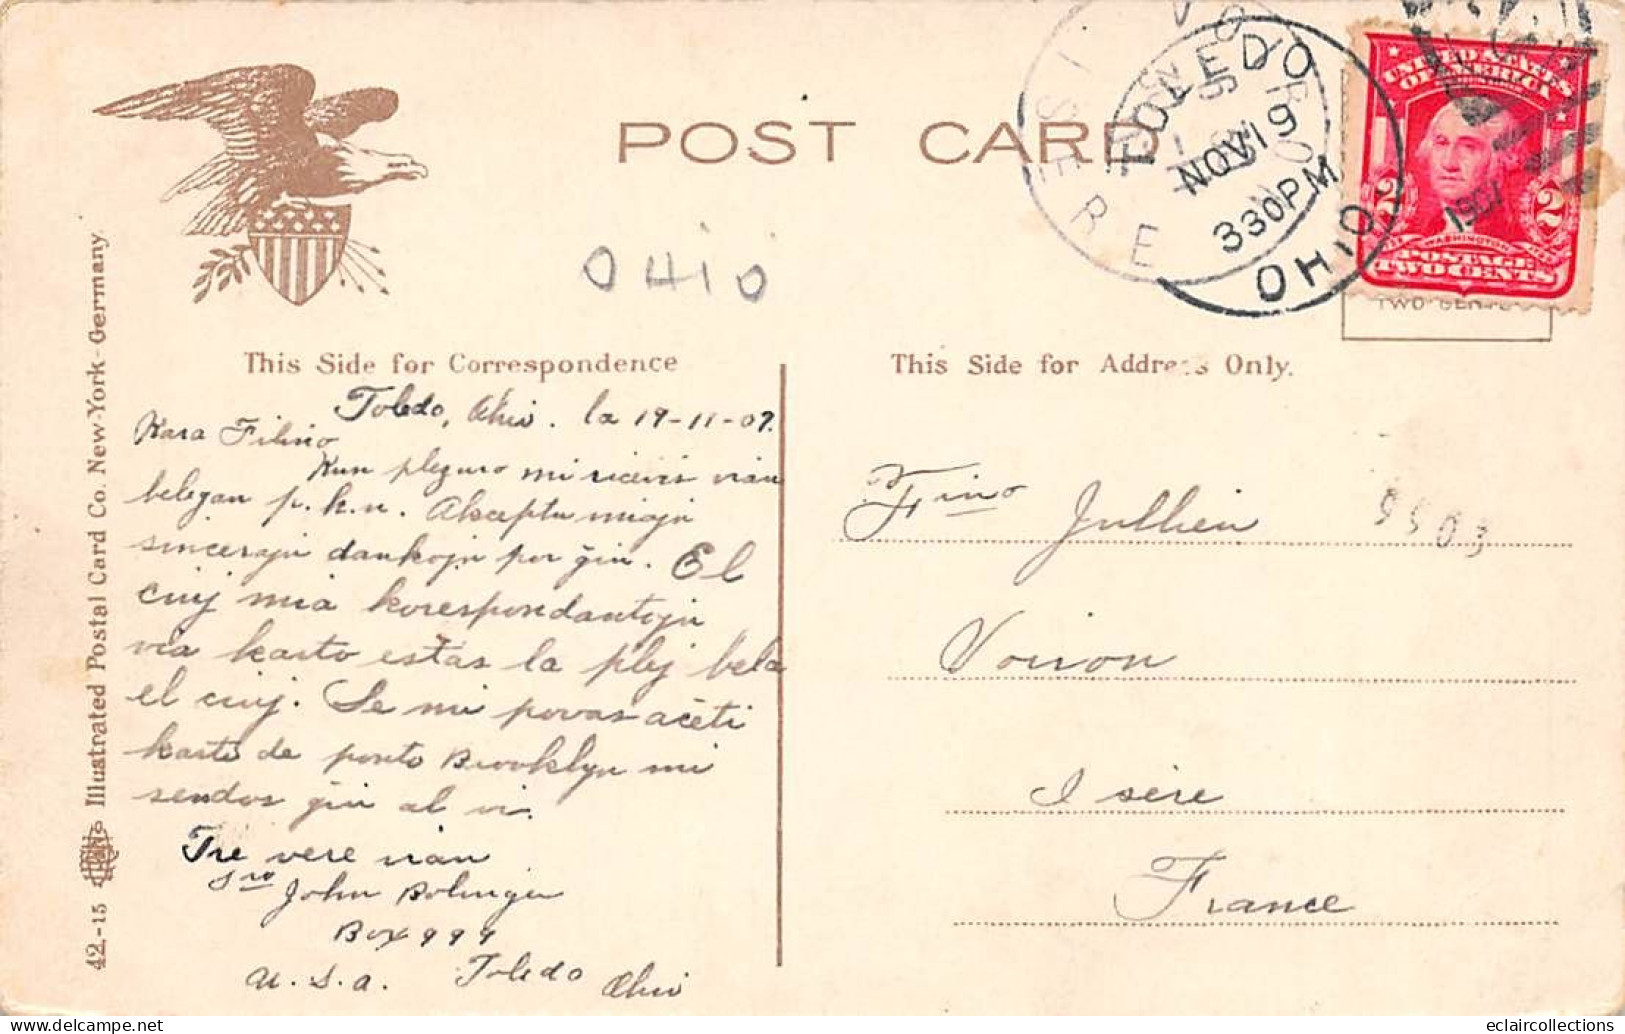 POST CARD
TOLEDO
NOV 19
330PM
1907
OHIO
ISERE
UNITED STATES
OF AMERICA
2 2
WASHINGTON
POSTAGE
TWO CENTS
OHiO
This Side for Correspondence
This Side for Address Only.
Toledo, Ohio. la 19-11-07.
Kara Fihino
Kun plezuro mi ricevis vian
belegan p. k. n. Akceptu miajn
sincerajn dankojn por ĝin. El
ciuj mia korespondantojn
via karto estas la plej bela
el ciuj. Se mi povas aĉeti
karto de ponto Brooklyn mi
sendos ĝin al vi.
Tre vere vian
Sro John Bolinger
Box 999
U. S. A. Toledo Ohio
Fino Jullien
9503
Voiron
Isère
France
Illustrated Postal Card Co. New-York-Germany.
42.-15
eclaircollections